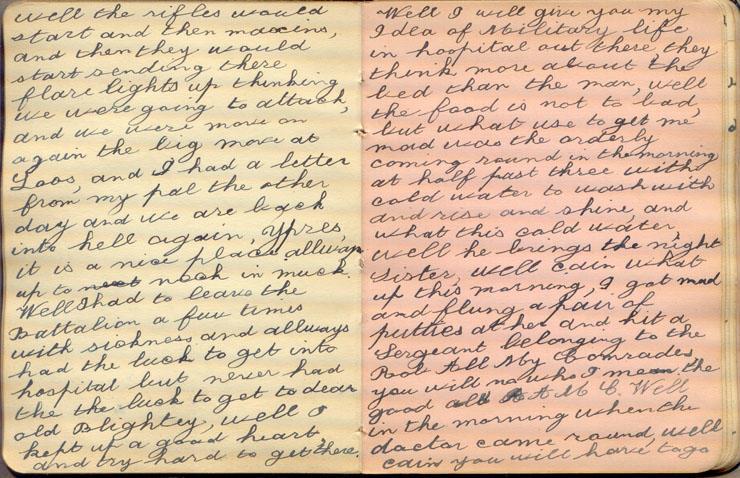 well the rifles would
start and then maxins,
and then they would
start sending there
flare lights up thinking
we were going to attack,
and we were move on
again the big move at
Loos, and I had a letter
from my pal the other
day and we are back
into hell again, Ypres,
it is a nice place allways
up to neck in muck.
Well I had to leave the
Battalion a few times
with sickness and allways
had the luck to get into
hospital but never had
the the luck to get to dear
old Blightey, well I
kept up a good heart
and try hard to get there.
Well I will give you my
Idea of Military life
in hospital out there they
think more about the
bed than the man, well
the food is not to bad,
but what use to get me
mad was the orderly
coming round in the morning
at half past three with
cold water to wash with
and rise and shine, and
what this cold water,
well he brings the night
Sister, well Cain what
up this morning, I got mad
and flung a pair of
putties at her and hit a
Sergeant belonging to the
Rob All My Comrades,
you will no who I mean the
good old R A M C Well
in the morning when the
doctor came round, well
Cain you will have to go